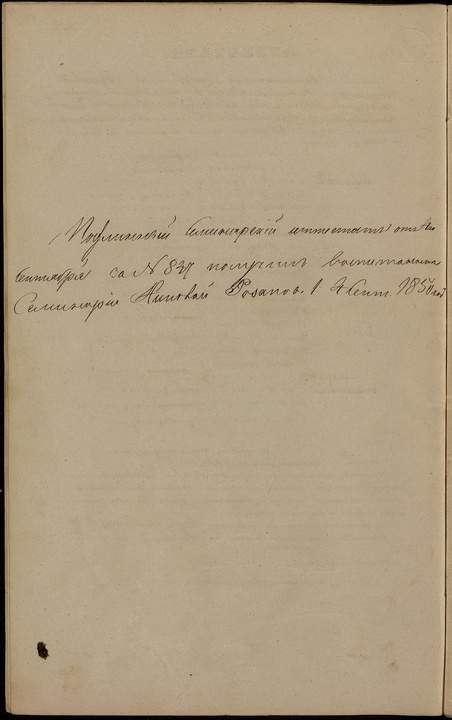 Подлинный Семинарскій аттестатъ отъ
Сентября за N 837 получилъ воспитанникъ
Семинаріи Николай Розановъ. 4 Сент. 1850 год